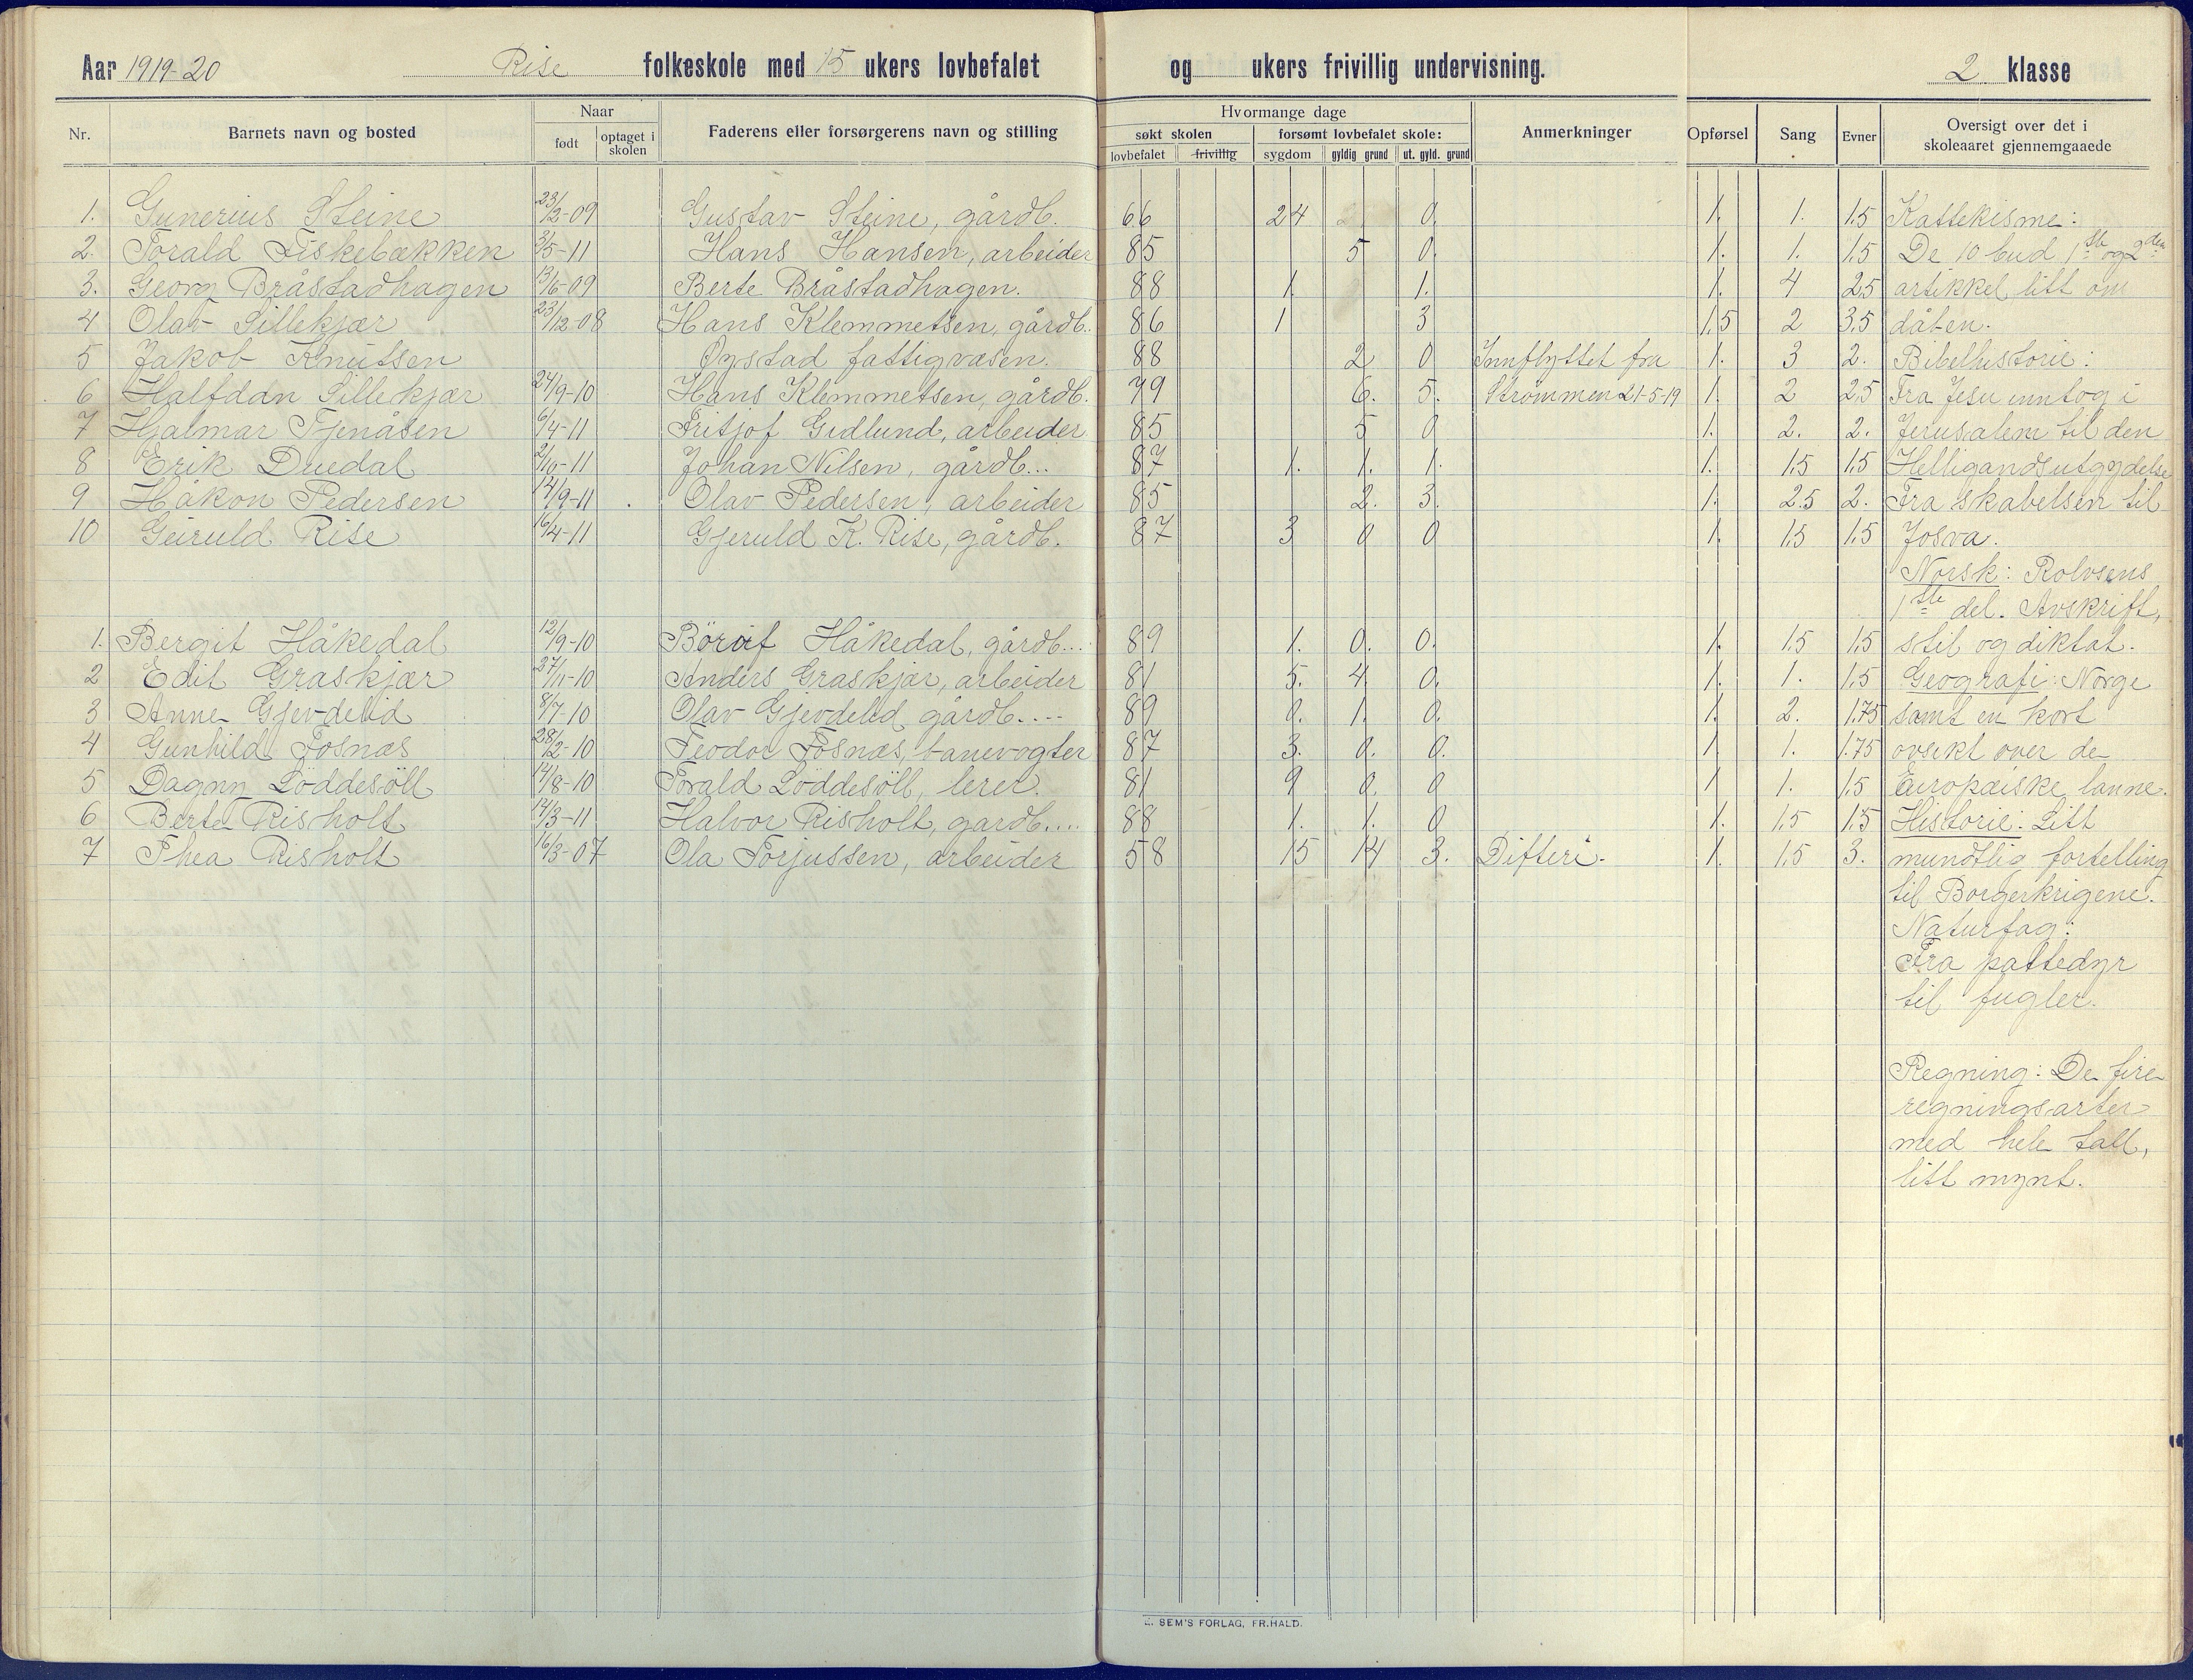 Aar 1919-20 Rise folkeskole med 15 ukers lovbefalet og ukers frivillig undervisning. 2 klasse
Nr. Barnets navn og bosted Naar født optaget i skolen Faderens eller forsørgerens navn og stilling Hvormange dage søkt skolen lovbefalet frivillig forsømt lovbefalet skole: sygdom gyldig grund ut. gyld. grund Anmerkninger Opførsel Sang Evner Oversigt over det i skoleaaret gjennemgaaede
1. Gunerius Steine 23/2-09 Gustav Steine, gårdb. 66 24 0. 1. 1. 1.5 Kattekisme:
2. Torald Fiskebækken 3/5-11 Hans Hansen, arbeider 85 5 0. 1. 1. 1.5 De 10 bud 1ste og 2den
3. Georg Bråstadhagen 13/6-09 Berte Bråstadhagen. 88 1. 1. 1. 4 2.5 artikkel litt om
4 Olav Sillekjær 23/12-08 Hans Klemmetsen, gårdb.. 86 1 3 1.5 2 3.5 dåben.
5 Jakob Knutsen Øystad fattigvæsen. 88 2 0 Innflyttet fra 1. 3 2. Bibelhistorie:
6 Halfdan Sillekjær 24/9-10 Hans Klemmetsen, gårdb. 79 6. 5. Strømmen 21-5-19 1. 2 2.5 Fra Jesu inntog i
7 Hjalmar Tjenåsen 6/4-11 Fritjof Gidlund, arbeider 85 5 0 1. 2. 2. Jerusalem til den
8 Erik Dredal 2/10-11 Johan Nilsen, gårdb... 87 1. 1. 1. 1. 1.5 1.5 Helligandsutgydelse
9 Håkon Pedersen 14/9-11 Olav Pedersen, arbeider 85 2. 3. 1. 2.5 2. Fra skabelsen til
10 Geiruld Rise 16/4-11 Gjeruld K. Rise, gårdb. 87 3 0 0 1. 1.5 1.5 Josva.
Norsk: Rolvsens
1ste del. Avskrift,
1. Bergit Håkedal 12/9-10 Håkedal, gårdb... 89 1. 0. 0. 1. 1.5 1.5 stil og diktat.
2 Edit Graskjær 27/11-10 Anders Graskjær, arbeider 81 5. 4 0. 1. 1. 1.5 Geografi: Norge
3 Anne Gjevdelid 8/7-10 Olav Gjevdelid gårdb.... 89 0. 1. 0. 1. 2. 1.75 samt en kort
4 Gunhild Fosnæs 28/2-10 Teodor Fosnæs, banevogter 87 3. 0. 0. 1. 1. 1.75 ovsikt over de
5 Dagny Løddesøll 14/8-10 Torald Løddesøll, lerer. 81 9 0. 0 1 1. 1.5 Europæiske lanne.
6 Berte Risholt 14/3-11 Halvor Risholt, gardb.... 88 1. 1. 0 1. 1.5 1.5 Historie: Litt
7 Thea Risholt 16/3-07 Ola Torjussen, arbeider 58 15 14 3. Difteri. 1. 1.5 3. mundtlig fortelling
til Borgerkrigene.
Naturfag:
Fra pattedyr
til fugler.
Regning: De fire
regningsarter
med hele tall,
litt mynt.
SEM'S FORLAG, FR.HALD.